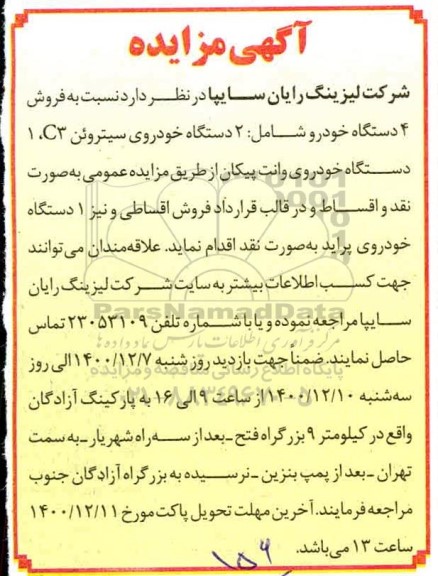 آگهی مزایده
شرکت لیزینگ رایان سایپا در نظر دارد نسبت به فروش
۴ دستگاه خودرو شامل: ۲ دستگاه خودروی سیتروئن C۳، ۱
دستگاه خودروی وانت پیکان از طریق مزایده عمومی به صورت
نقد و اقساط و در قالب قرارداد فروش اقساطی و نیز ۱ دستگاه
خودروی پراید به صورت نقد اقدام نماید. علاقه‌مندان می‌توانند
جهت کسب اطلاعات بیشتر به سایت شرکت لیزینگ رایان
سایپا مراجعه نموده و یا با شماره تلفن ۲۳۰۵۳۱۰۹ تماس
حاصل نمایند. ضمناً جهت بازدید روز شنبه ۱۴۰۰/۱۲/۷ الی روز
سه‌شنبه ۱۴۰۰/۱۲/۱۰ از ساعت ۹ الی ۱۶ به پارکینگ آزادگان
واقع در کیلومتر ۹ بزرگراه فتح - بعد از سه‌راه شهریار - به سمت
تهران - بعد از پمپ بنزین - نرسیده به بزرگراه آزادگان جنوب
مراجعه فرمایند. آخرین مهلت تحویل پاکت مورخ ۱۴۰۰/۱۲/۱۱
ساعت ۱۳ می‌باشد.
ParsNamadData